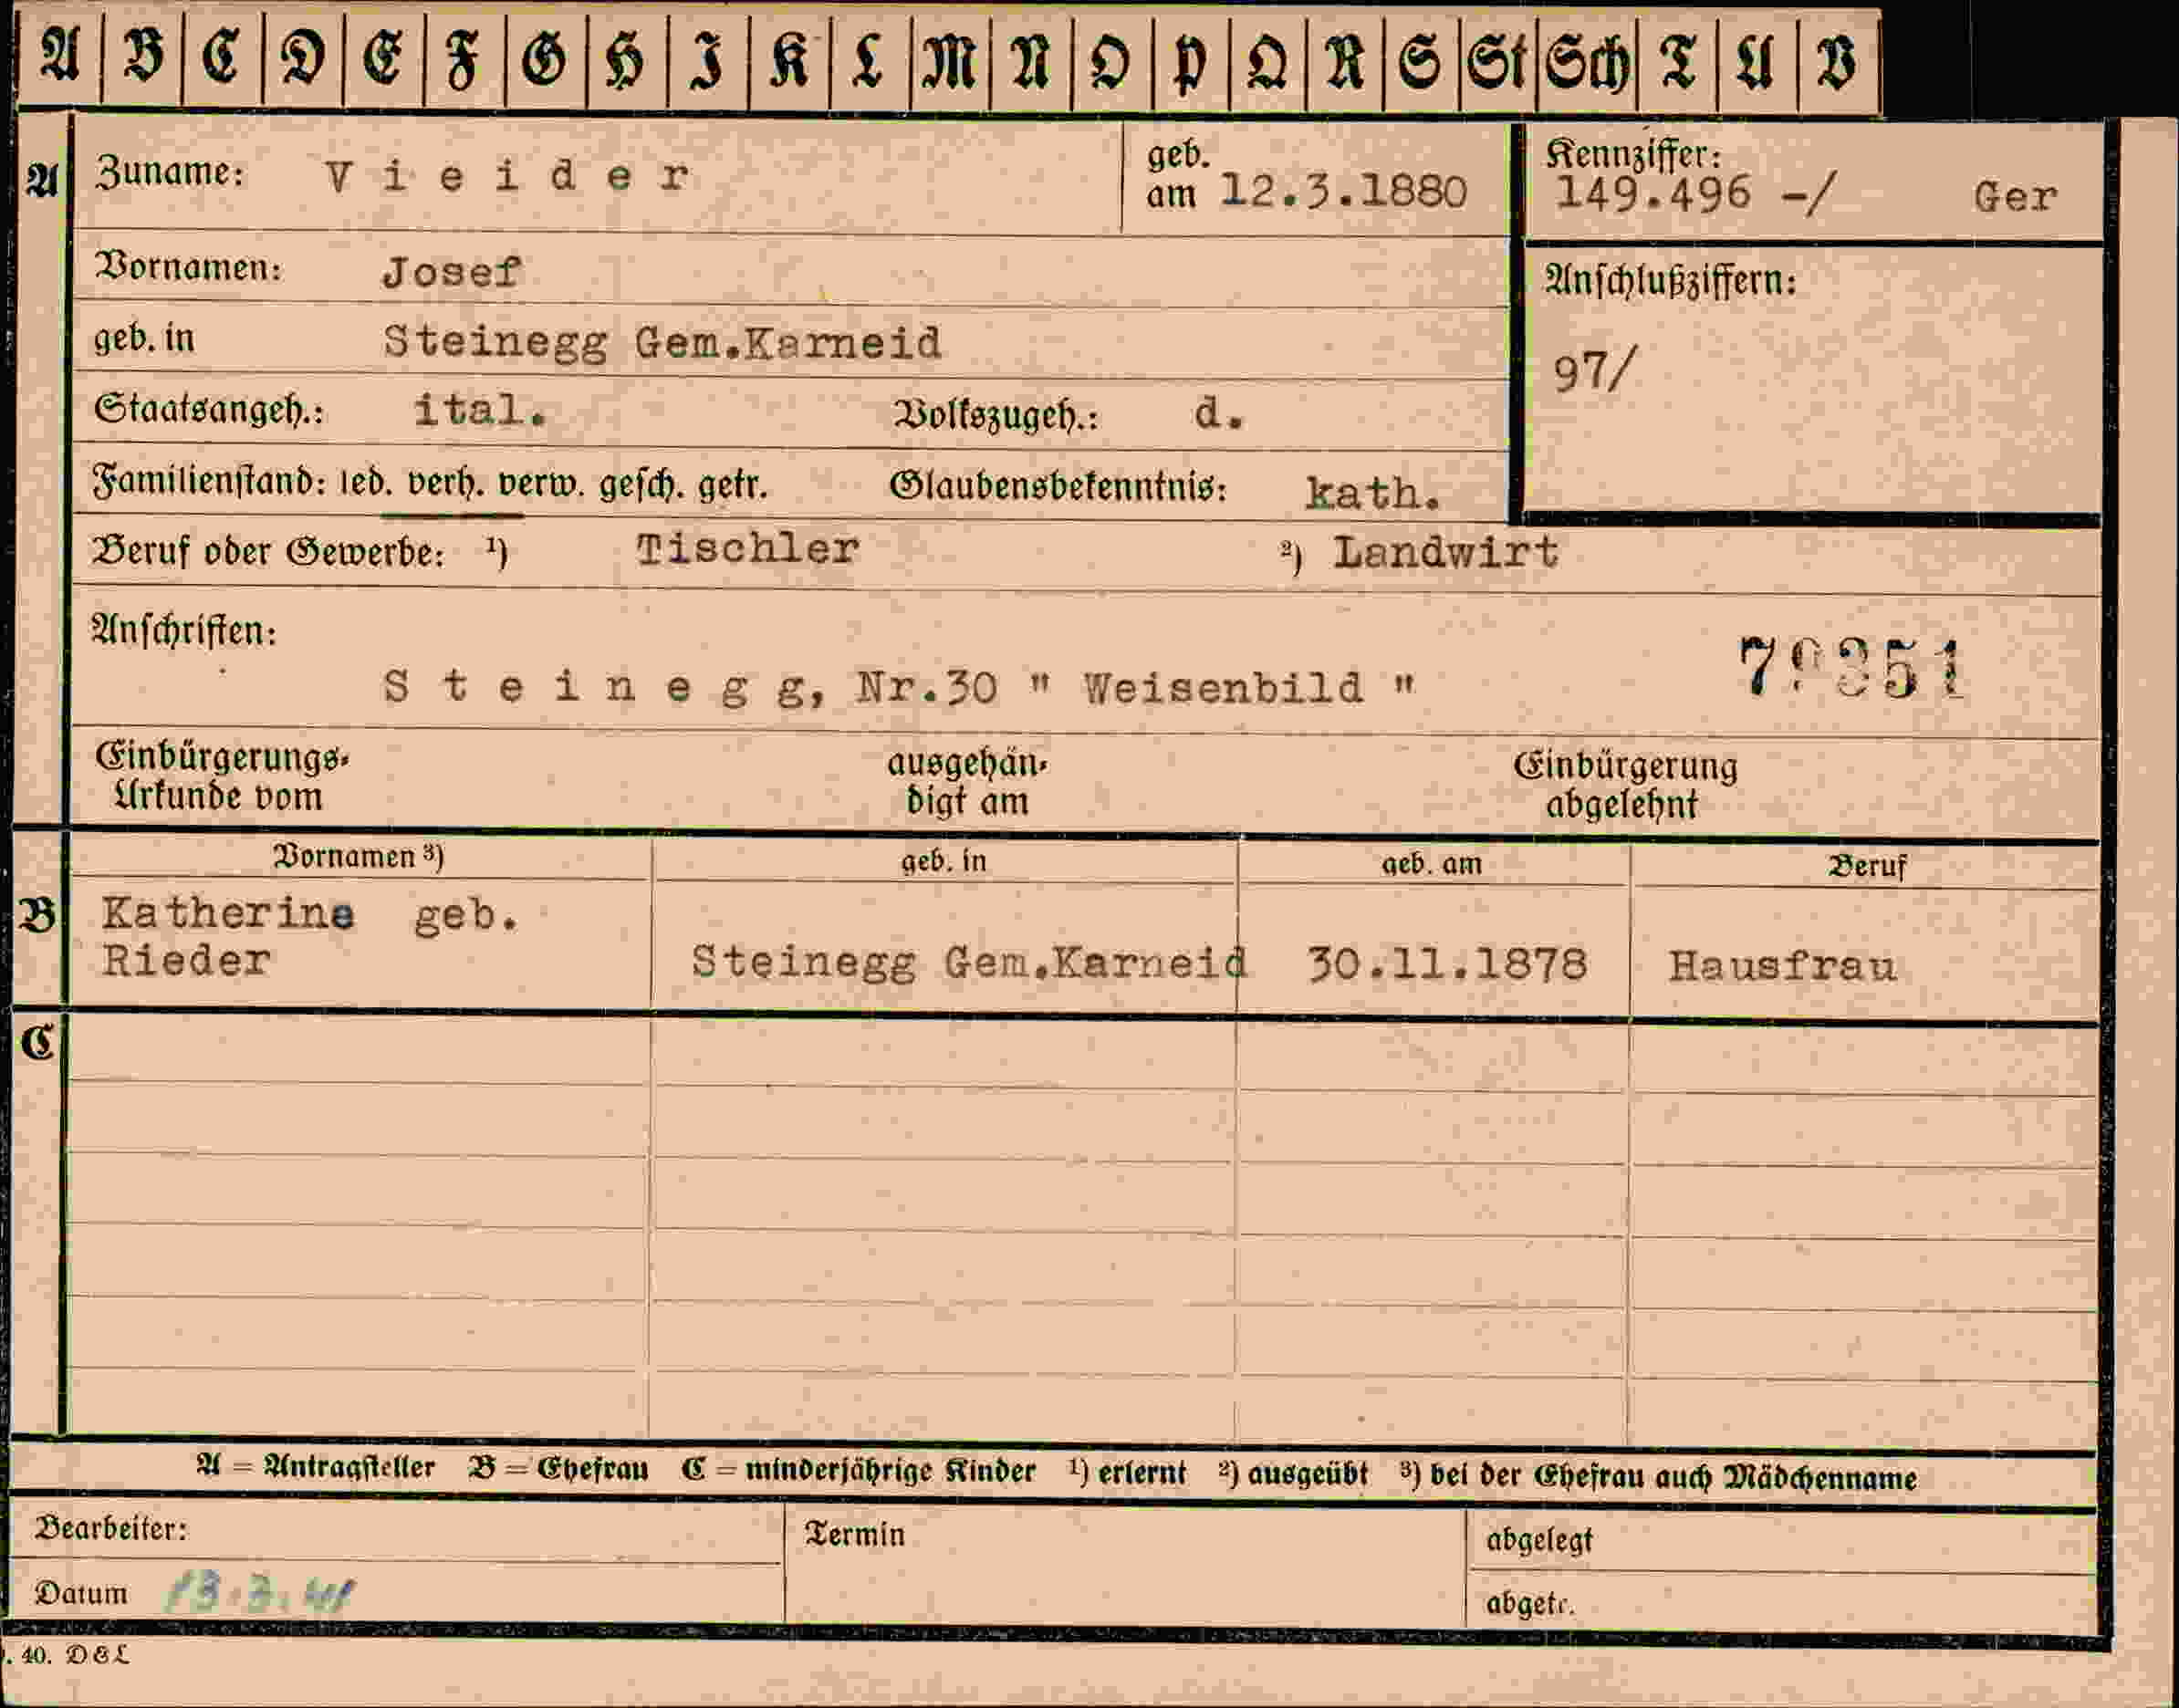 A B C D E F G H I K L M N O P Q R S St Sch T U V
A Zuname: Vieider geb. am 12.3.1880 Kennziffer: 149.496 -/ Ger
Vornamen: Josef Anschlußziffern:
geb. in Steinegg Gem.Karneid 97/
Staatsangeh.: ital. Volkszugeh.: d.
Familienstand: led. verh. verw. gesch. getr. Glaubensbekenntnis: kath.
Beruf oder Gewerbe: ¹) Tischler ²) Landwirt
Anschriften:
Steinegg, Nr.30 " Weisenbild "
Einbürgerungs- ausgehän- Einbürgerung
Urkunde vom digt am abgelehnt
Vornamen ³) geb. in geb. am Beruf
B Katherine geb.
Rieder Steinegg Gem.Karneid 30.11.1878 Hausfrau
C
A = Antragsteller B = Ehefrau C = minderjährige Kinder ¹) erlernt ²) ausgeübt ³) bei der Ehefrau auch Mädchenname
Bearbeiter: Termin abgelegt
Datum 13.3.41 abgetr.
. 40. D&L